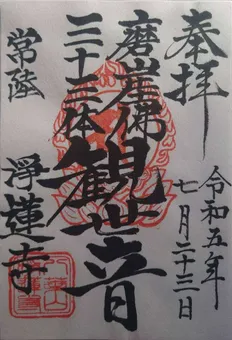 奉拝
令和五年
七月二十三日
磨崖佛
三十三体
観世音
常陸
浄蓮寺